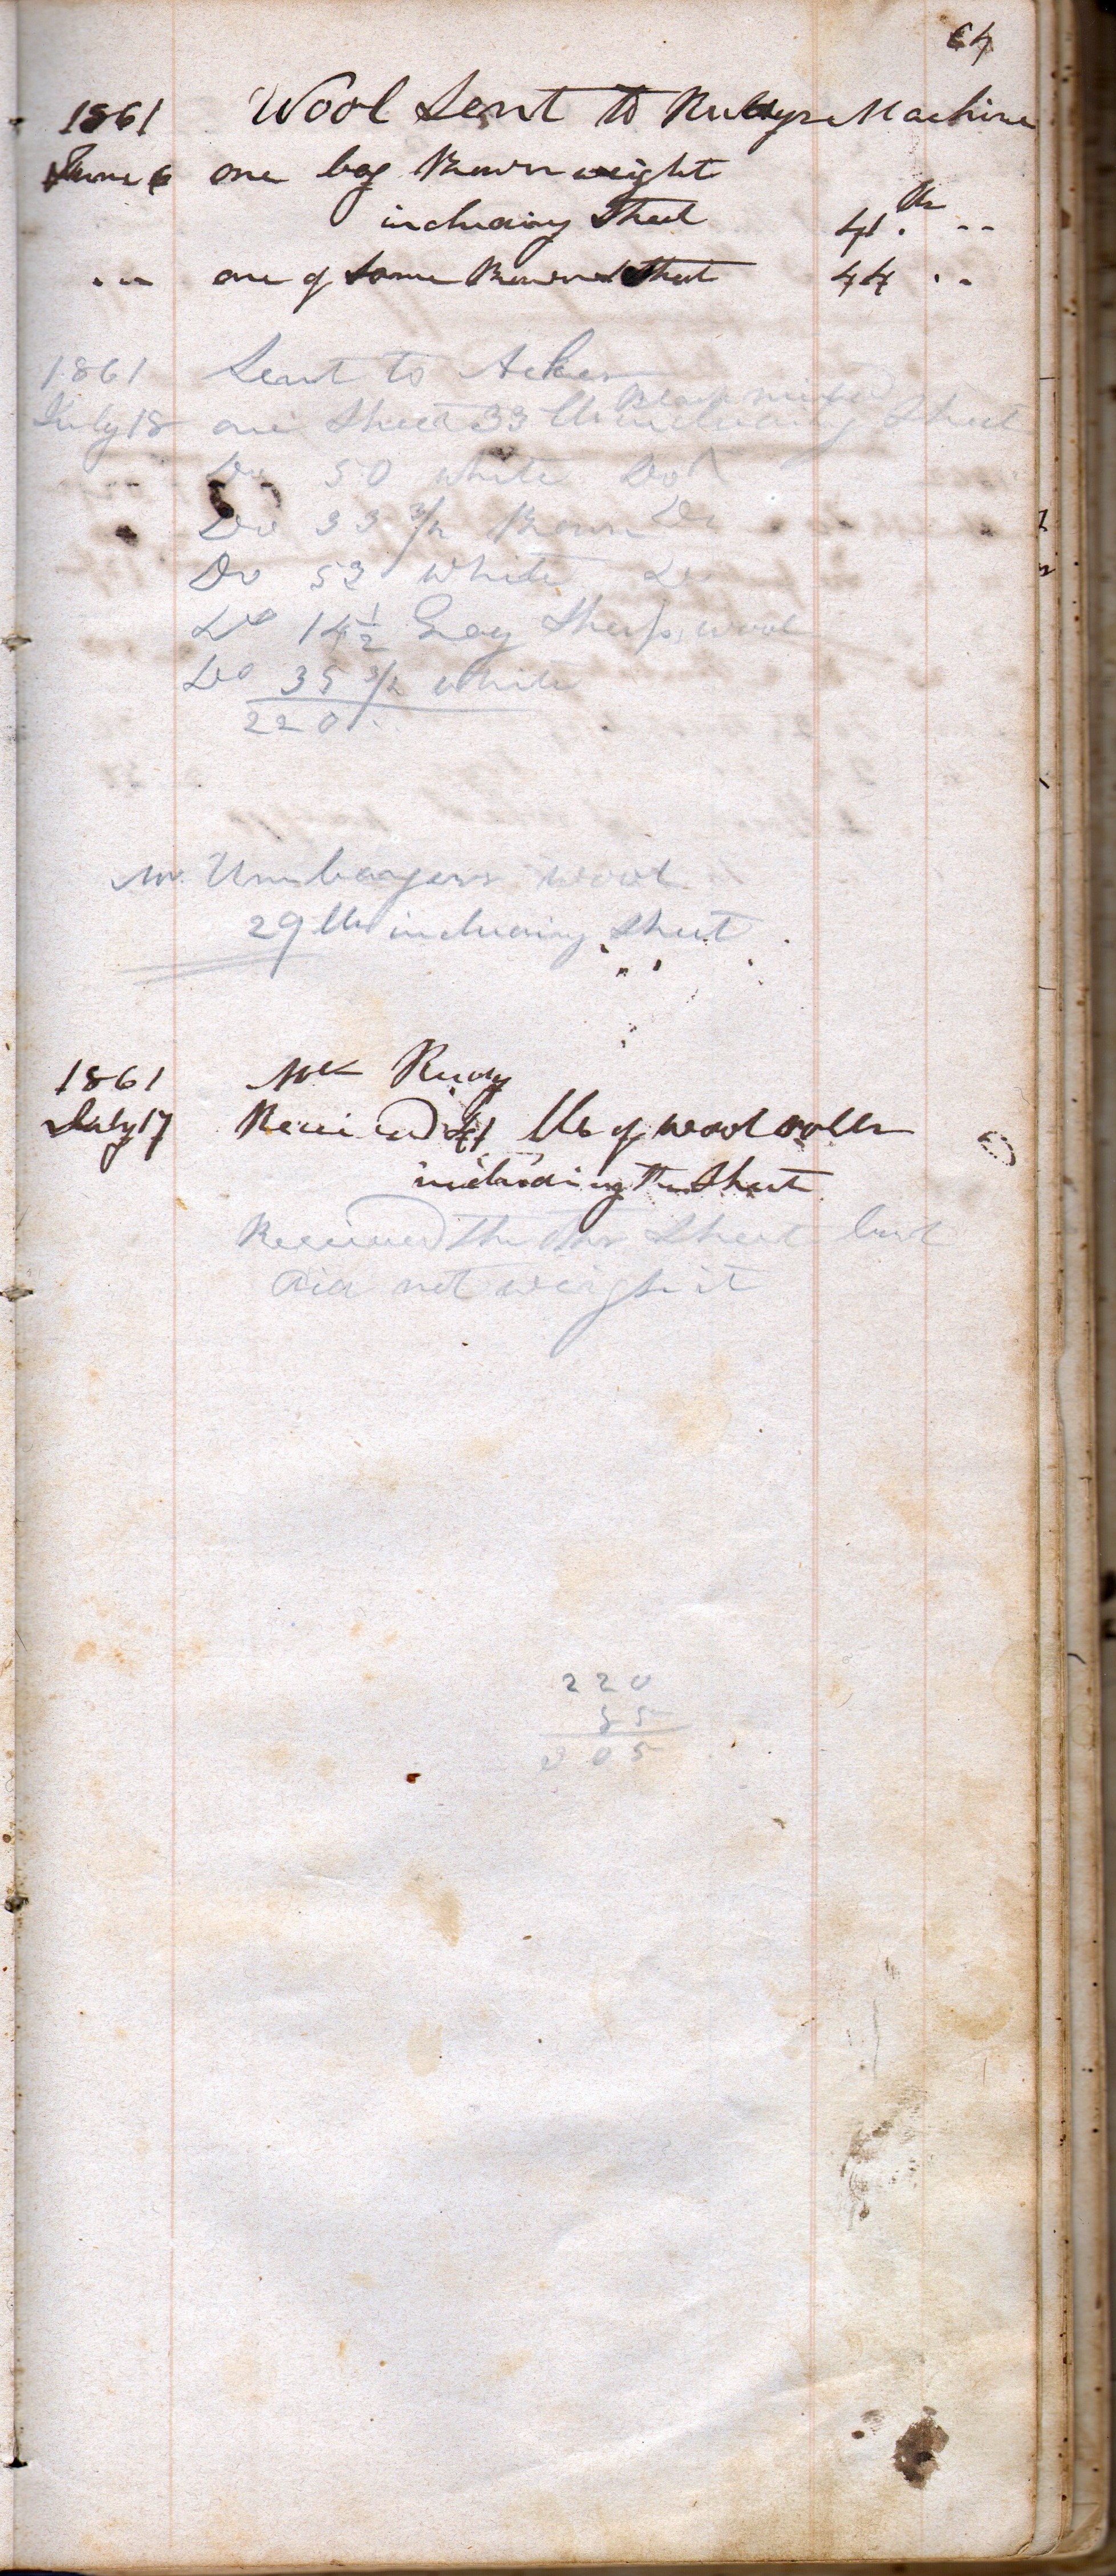 64
1861 Wool Sent to Rudys Machine
June 6 one bag Brown weight
including Sheet 41 lb . --
.. -- one of Same Brown Sheet 44 . --
1861 Sent to
July 18 one Sheet 33 lb including Sheet
Do 50 white Do
Do 33 3/2 Brown Do
Do 53 white Do
Do 14 1/2 Gray Sheeps wool
Do 35 3/2 white
220
Mr. Umbargers wool
29 lbs including Sheet
1861 Mr Rudy
July 17 Received 41 lbs of wool rolls
including the Sheet
Received the other Sheet but
did not weigh it
220
85
305